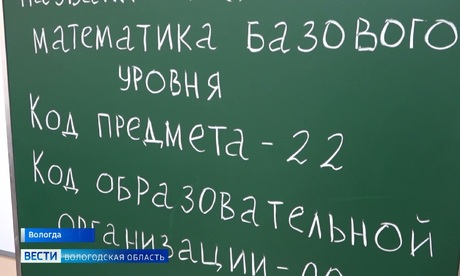 МАТЕМАТИКА БАЗОВОГО
УРОВНЯ
КОД ПРЕДМЕТА - 22
КОД ОБРАЗОВАТЕЛЬНОЙ
ОРГАНИЗАЦИИ -
Вологда
ВЕСТИ ВОЛОГОДСКАЯ ОБЛАСТЬ